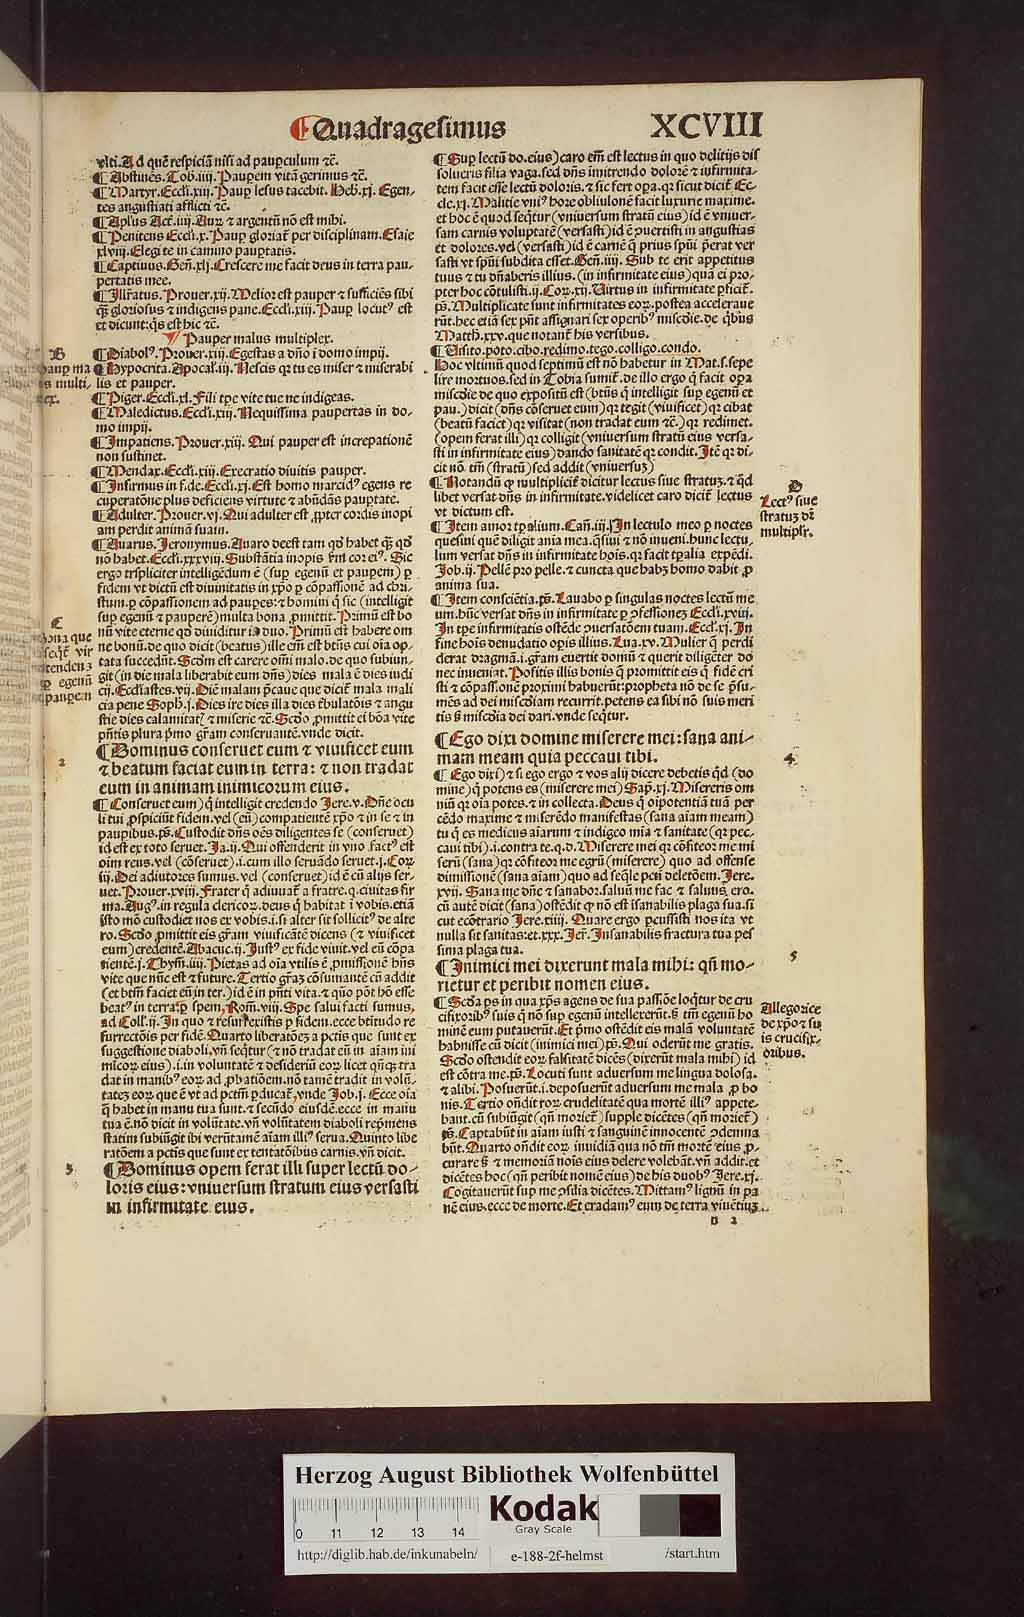 Quadragesimus XCVIII
vlti. Ad quē respiciā nisi ad paupculum ⁊c̄.
¶ Abstinēs. Tob. iiij. Paupem vitā gerimus ⁊c̄.
¶ Martyr. Eccl'i. xiij. Paup lesus tacebit. Heb. xj. Egen-
tes angustiati afflicti ⁊c̄.
¶ Apl'us Act. iij. Aur ⁊ argentū nō est mihi.
¶ Penitens Eccl'i. x. Paup gloriat per disciplinam. Esaie
xlviij. Elegi te in camino paupertatis.
¶ Captiuus. Geñ. xlj. Crescere me facit deus in terra pau-
pertatis mee.
¶ Illr̄atus. Prouer. xij. Melior est pauper ⁊ sufficiēs sibi
q̄ȝ gloriosus ⁊ indigens pane. Eccl'i. xiij. Paup locut⁹ est
et dicunt: q̄s est hic ⁊c̄.
Pauper malus multiplex.
¶ Diabol⁹. Prouer. xiij. Egestas a dño ī domo impij.
¶ Hypocrita. Apocal'. iij. Nescis qꝛ tu es miser ⁊ miserabi
lis et pauper.
¶ Piger. Eccl'i. xl. Fili tpe vite tue ne indigeas.
¶ Maledictus. Eccl'i. xiij. Nequissima paupertas in do-
mo impij.
¶ Impatiens. Prouer. xiij. Qui pauper est increpationē
non sustinet.
¶ Mendax. Eccl'i. xiij. Execratio diuitis pauper.
¶ Infirmus in f. de. Eccl'i. xj. Est homo marcid⁹ egens re
cuperatōne plus deficiens virtute ⁊ abūdās paupertate.
¶ Adulter. Prouer. vj. Qui adulter est, ꝓpter cordis inopi
am perdit animā suam.
¶ Auarus. Jeronymus. Auaro deest tam qd̄ habet q̄ȝ qd̄
nō habet. Eccl'i. xxxviij. Substātia inopis fm̄ cor ei⁹. Sic
ergo tripliciter intelligēdum ē (sup egenū et paupem) p
fidem vt dictū est diuinitatis in xp̄o p cōpassionē ad chri-
stum. p cōpassionem ad paupes: ⁊ homini q̄ sic (intelligit
sup egenū ⁊ pauperē) multa bona ꝓmittit. Primū est bo
nū vite eterne qd̄ diuiditur in duo. Primū est habere om
ne bonū. de quo dicit (beatus) ille em̄ est bt̄us cui oīa op-
tata succedūt. Scd̄m est carere om̄i malo. de quo subiun-
git (in die mala liberabit eum dn̄s) dies mala ē dies iudi
cij. Ecclīastes. vij. Diē malam p̄caue que dicit mala mali
cia pene Soph. j. Dies ire dies illa dies tribulatōis ⁊ angu
stie dies calamitat⁊ ⁊ miserie ⁊c̄. Scd̄o ꝓmittit ei bōa vite
p̄ntis plura p̄mo gr̄am conseruantē. vnde dicit.
¶ Dominus conseruet eum ⁊ viuificet eum
⁊ beatum faciat eum in terra: ⁊ non tradat
eum in animam inimicorum eius.
¶ Conseruet eum) q̄ intelligit credendo Jere. v. Dñe ocu
li tui ꝓspiciūt fidem. vel (eū) compatientē xp̄o ⁊ in se ⁊ in
paupibus. ps̄. Custodit dn̄s oēs diligentes se (conseruet)
id est ex toto seruet. Ja. ij. Qui offenderit in vno fact⁹ est
oīm reus. vel (cōseruet). i. cum illo seruādo seruet. j. Cor
iij. Dei adiutores sumus. vel (conseruet) id ē cū alijs ser-
uet. Prouer. xviij. Frater q̄ adiuuat a fratre. q. ciuitas fir
ma. Aug⁹. in regula clericor. deus q̄ habitat ī vobis. etiā
isto mō custodiet nos ex vobis. i. si alter sit sollicit⁹ de alte
ro. Scd̄o ꝓmittit eis gr̄am viuificātē dicens (⁊ viuificet
eum) credentē. Abacuc. ij. Just⁹ ex fide viuit. vel eū cōpa
tientē. j. Thym̄. iiij. Pietas ad oīa vtilis ē ꝓmissionē hn̄s
vite que nūc est ⁊ future. Tertio gr̄aȝ cōsumantē cū addit
(et btm̄ faciet eū in ter.) id ē in pn̄ti vita. ⁊ quō pōt hō esse
beat⁹ in terra: p spem, Rom̄. viij. Spe salui facti sumus,
ad Coll'. ij. In quo ⁊ resurrexistis p fidem. ecce btitudo re
surrectōis per fidē. Quarto liberatōeȝ a pctis que sunt ex
suggestione diaboli. vn̄ seqt̄ur (⁊ nō tradat eū in aīam ini
micor eius). i. in voluntatē ⁊ desideriū eor licet qn̄q̄ tra
dat in manib⁹ eor ad ꝓbatiōem. nō tamē tradit in volū-
tateȝ eor que ē vt ad pctm̄ pducat, vnde Job. j. Ecce oīa
q̄ habet in manu tua sunt. ⁊ secūdo eiusdē. ecce in manu
tua ē. nō dicit in volūtate. vn̄ volūtatem diaboli repmens
statim subiūgit ibi verūtamē aīam illi⁹ serua. Quinto libe
ratōem a pctis que sunt ex tentatōibus carnis. vn̄ dicit.
¶ Dominus opem ferat illi super lectū do-
loris eius: vniuersum stratum eius versasti
in infirmitate eius.
B
Paup ma
us multi-
lex.
C
Bona que
seq̄t vir
p egenū
paupem
2
3
¶ Sup lectū do. eius) caro em̄ est lectus in quo delitijs dis
solueris filia vaga. sed dn̄s imitrendo dolorē ⁊ infirmita-
tem facit esse lectū doloris. ⁊ sic fert opa. qꝛ sicut dicit Ec-
cle. xj. Malitie vni⁹ hore obliuionē facit luxurie maxime.
et hoc ē quod seqt̄ur (vniuersum stratū eius) id ē vniuer-
sam carnis voluptatē (versasti) id ē puertisti in angustias
et dolores. vel (versasti) id ē carnē q̄ prius spūi p̄erat ver
sasti vt spūi subdita esset. Geñ. iiij. Sub te erit appetitus
tuus ⁊ tu dn̄aberis illius. (in infirmitate eius) qua ei pro-
pter hoc cōtulisti. ij. Cor. xij. Virtus in infirmitate pficit.
ps̄. Multiplicate sunt infirmitates eor. postea accelerauē
rūt. hec etiā sex pn̄t assignari sex operib⁹ miscd̄ie. de qb⁹us
Matth. xxv. que notant his versibus.
¶ Uisito. poto. cibo. redimo. tego. colligo. condo.
Hoc vltimū quod septimū est nō habetur in Mat. s. sepe
lire mortuos. sed in Tobia sumit. de illo ergo q̄ facit opa
miscd̄ie de quo expositū est (bt̄us q̄ intelligit sup egenū et
pau.) dicit (dn̄s cōseruet eum) qꝛ tegit (viuificet) qꝛ cibat
(beatū faciet) qꝛ visitat (non tradat eum ⁊c̄.) qꝛ redimet.
(opem ferat illi) qꝛ colligit (vniuersum stratū eius versa-
sti in infirmitate eius) dando sanitatē qꝛ condit. Itē qꝛ di-
cit nō tm̄ (stratū) sed addit (vniuersuȝ)
¶ Notandū ꝙ multiplicit dicitur lectus siue stratuȝ. ⁊ qd̄
libet versat dn̄s in infirmitate. videlicet caro dicit lectus
vt dictum est.
¶ Item amor tpalium. Cañ. iij. In lectulo meo p noctes
quesiui quē diligit aīa mea. q̄siui ⁊ nō inueni. hunc lectu-
lum versat dn̄s in infirmitate hoīs. qꝛ facit tpalia expēdi.
Job. ij. Pellē pro pelle. ⁊ cuncta que habȝ homo dabit ꝓ
anima sua.
¶ Item consciētia. ps̄. Lauabo p singulas noctes lectū me
um. hūc versat dn̄s in infirmitate p ꝯfessioneȝ Eccl'i. xviij.
In tpe infirmitatis ostēde ꝯuersatōem tuam. Eccl'i. xj. In
fine hoīs denudatio opis illius. Luc. xv. Mulier q̄ perdi
derat dragmā. i. gr̄am euertit domū ⁊ querit diligēter do
nec inueniat. Positis illis bonis q̄ promittit eis q̄ fidē cri
sti ⁊ cōpassionē proximi habuerūt: propheta nō de se p̄su-
mēs ad dei miscd̄iam recurrit. petens ea sibi nō suis meri
tis s̄ miscd̄ia dei dari. vnde seqt̄ur.
¶ Ego dixi domine miserere mei: sana ani-
mam meam quia peccaui tibi.
¶ Ego dixi) ⁊ si ego ergo ⁊ vos alij dicere debetis qd̄ (do
mine) q̄ potens es (miserere mei) Sap. xj. Misereris om
niū qꝛ oīa potes. ⁊ in collecta. Deus q̄ oīpotentiā tuā per
cēdo maxime ⁊ miserēdo manifestas (sana aīam meam)
tu q̄ es medicus aīarum ⁊ indigeo mīa ⁊ sanitate (qꝛ pec-
caui tibi). i. contra te. q. d. Miserere mei qꝛ cōfiteor me mi
serū (sana) qꝛ cōfiteor me egrū (miserere) quo ad offense
dimissionē (sana aīam) quo ad seq̄le pcti deletōem. Jere.
xvij. Sana me dn̄e ⁊ sanabor. saluū me fac ⁊ saluus ero.
cū autē dicit (sana) ostēdit ꝙ nō est īsanabilis plaga sua. si
cut ecōtrario Jere. xiiij. Quare ergo pcussisti nos ita vt
nulla sit sanitas: et. xxx. Jer. Insanabilis fractura tua pes
sima plaga tua.
¶ Inimici mei dixerunt mala mihi: qn̄ mo-
rietur et peribit nomen eius.
¶ Scd̄a ps in qua xp̄us agens de sua passiōe loqt̄ur de cru
cifixorib⁹ suis q̄ nō sup egenū intellexerūt. s̄ tm̄ egenū ho
minē eum putauerūt. Et p̄mo ostēdit eis malā voluntatē
habuisse cū dicit (inimici mei) ps̄. Qui oderūt me gratis.
Scd̄o ostendit eor falsitatē dicēs (dixerūt mala mihi) id
est cōtra me. ps̄. Locuti sunt aduersum me lingua dolosa.
⁊ alibi. Posuerūt. i. deposuerūt aduersum me mala ꝓ bo
nis. Tertio oñdit eor crudelitatē qua mortē illi⁹ appete-
bant. cū subiūgit (qn̄ moriet) supple dicētes (qn̄ moriet)
ps̄. Captabūt in aīam iusti ⁊ sanguinē innocentē ꝯdemna
būt. Quarto oñdit eor inuidiā qua nō tm̄ mortē eius ꝓ-
curare s̄ ⁊ memoriā noīs eius delere volebāt. vn̄ addit. et
dicētes hoc (qn̄ peribit nomē eius) de his duob⁹ Jere. xj.
Cogitauerūt sup me ꝯsilia dicētes. Mittam⁹ lignū in pa
nē eius. ecce de morte. Et eradam⁹ eum de terra viuētiuȝ.
n 2
D
Lect⁹ siue
stratuȝ dr̄
multipl'r.
4
5
Allegorice
de xp̄o ⁊ su
is crucifix-
oribus.
Herzog August Bibliothek Wolfenbüttel
0 11 12 13 14
Kodak
Gray Scale
http://diglib.hab.de/inkunabeln/
e-188-2f-helmst
/start.htm